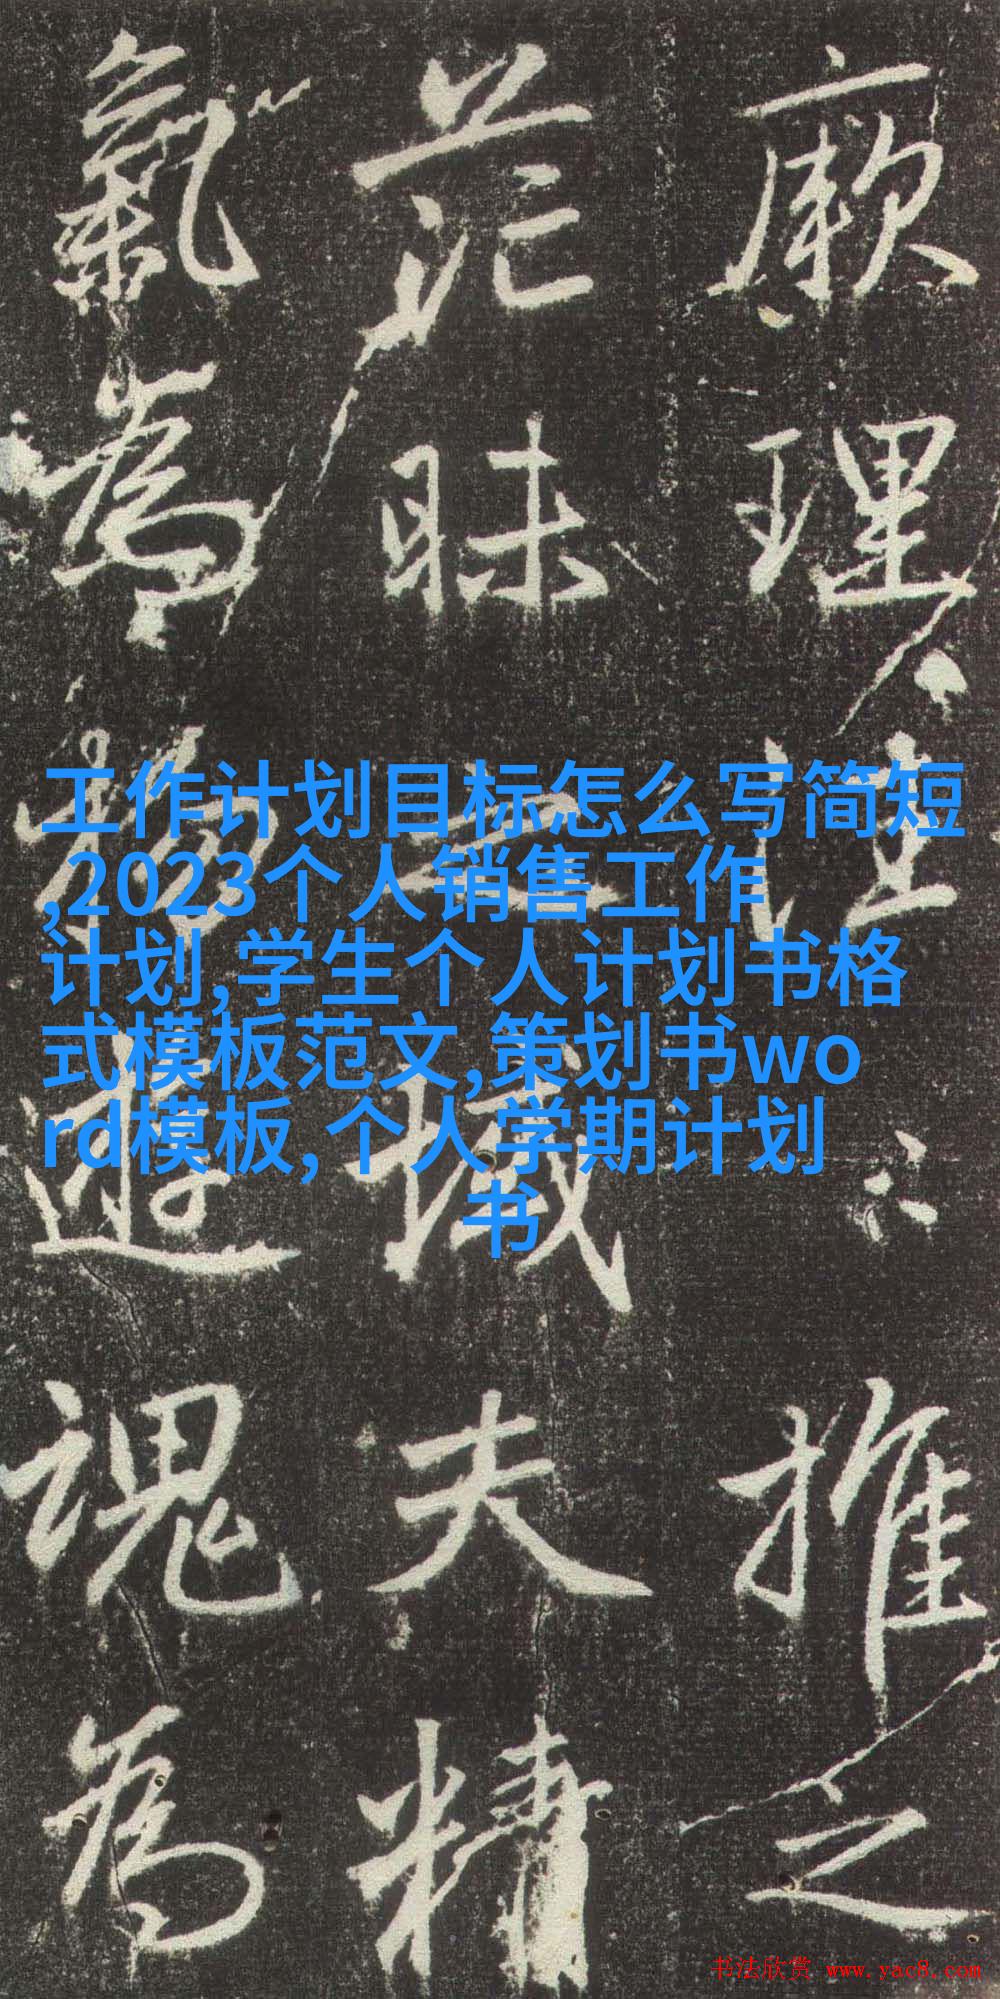 厥理
推之
茫昧
城夫精
氣為
遊魂為
工作计划目标怎么写简短
,2023个人销售工作
计划,学生个人计划书格
式模板范文,策划书wo
rd模板,个人学期计划
书
书法欣赏 www.yac8.com